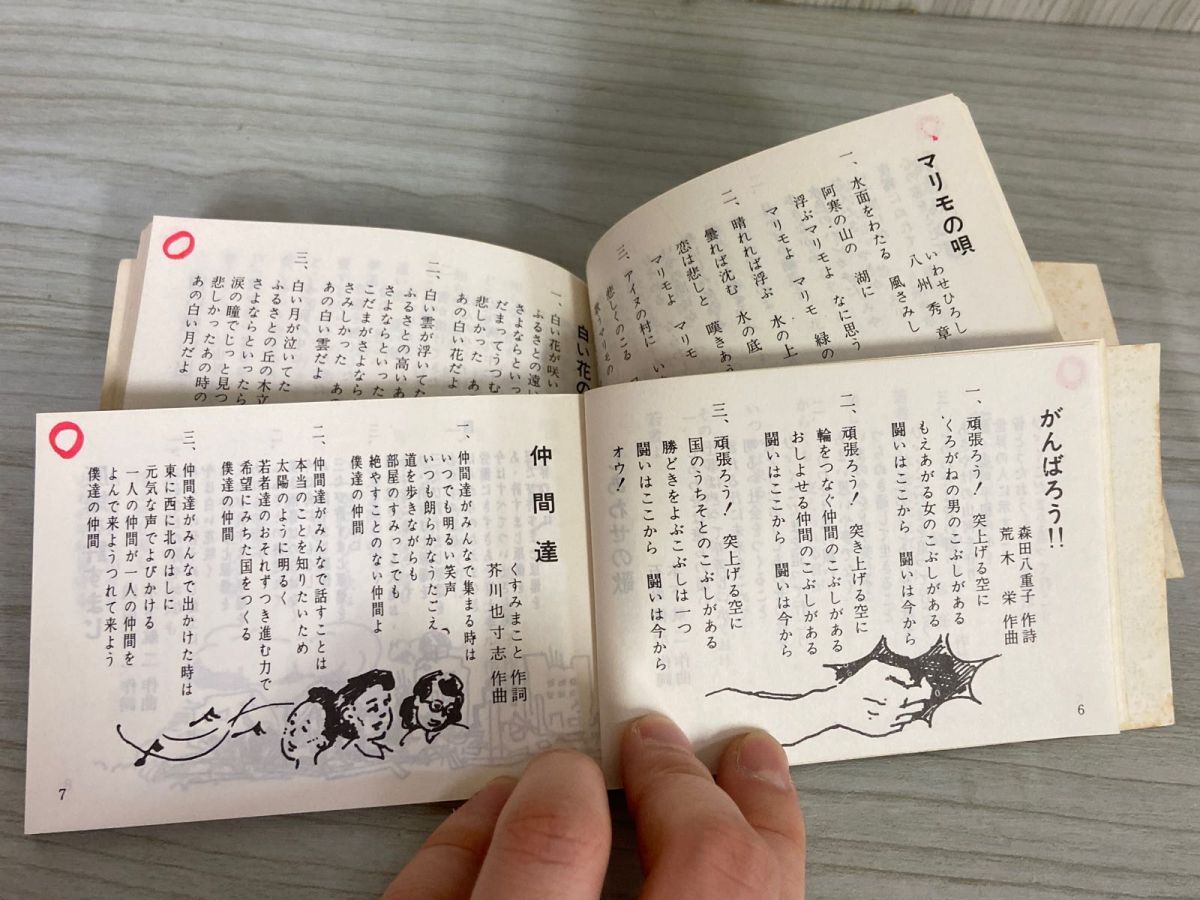 マリモの唄
いわせひろし
八州秀章
一、水面をわたる 風さみし
阿寒の山の 湖に
浮ぶマリモよ なに思う
マリモよ マリモ 緑の
二、晴れれば浮ぶ 水の上
曇れば沈む 水の底
恋は悲しと 嘆きあ
マリモよ マリモ
三、アイヌの村に い
悲しくのこる
歌うマリモの
マ
白い花の
一、白い花が咲い
ふるさとの遠い
さよならといっ
だまってうつむ
悲しかった あ
あの白い花だよ
二、白い雲が浮いてた
ふるさとの高いあ
さよならといった
こだまがさよなら
さみしかった あ
あの白い雲だよ
三、白い月が泣いてた
ふるさとの丘の木立
さよならといったら
涙の瞳でじっと見つ
悲しかったあの時の
あの白い月だよ
がんばろう!!
森田八重子 作詩
荒木栄 作曲
一、頑張ろう! 突上げる空に
くろがねの男のこぶしがある
もえあがる女のこぶしがある
闘いはここから 闘いは今から
二、頑張ろう! 突き上げる空に
輪をつなぐ仲間のこぶしがある
おしよせる仲間のこぶしがある
闘いはここから 闘いは今から
三、頑張ろう! 突上げる空に
国のうちそとのこぶしがある
勝どきをよぶこぶしは一つ
闘いはここから 闘いは今から
オウ!
6
仲間達
くすみまこと 作詞
芥川也寸志 作曲
一、仲間達がみんなで集まる時は
いつでも明るい笑声
いつも朗らかなうたごえ
道を歩きながらも
部屋のすみっこでも
絶やすことのない仲間よ
僕達の仲間
二、仲間達がみんなで話すことは
本当のことを知りたいため
太陽のように明るく
若者達のおそれずつき進む力で
希望にみちた国をつくる
僕達の仲間
三、仲間達がみんなで出かけた時は
東に西に北のはしに
元気な声でよびかける
一人の仲間が一人の仲間を
よんで来ようつれて来よう
僕達の仲間
7